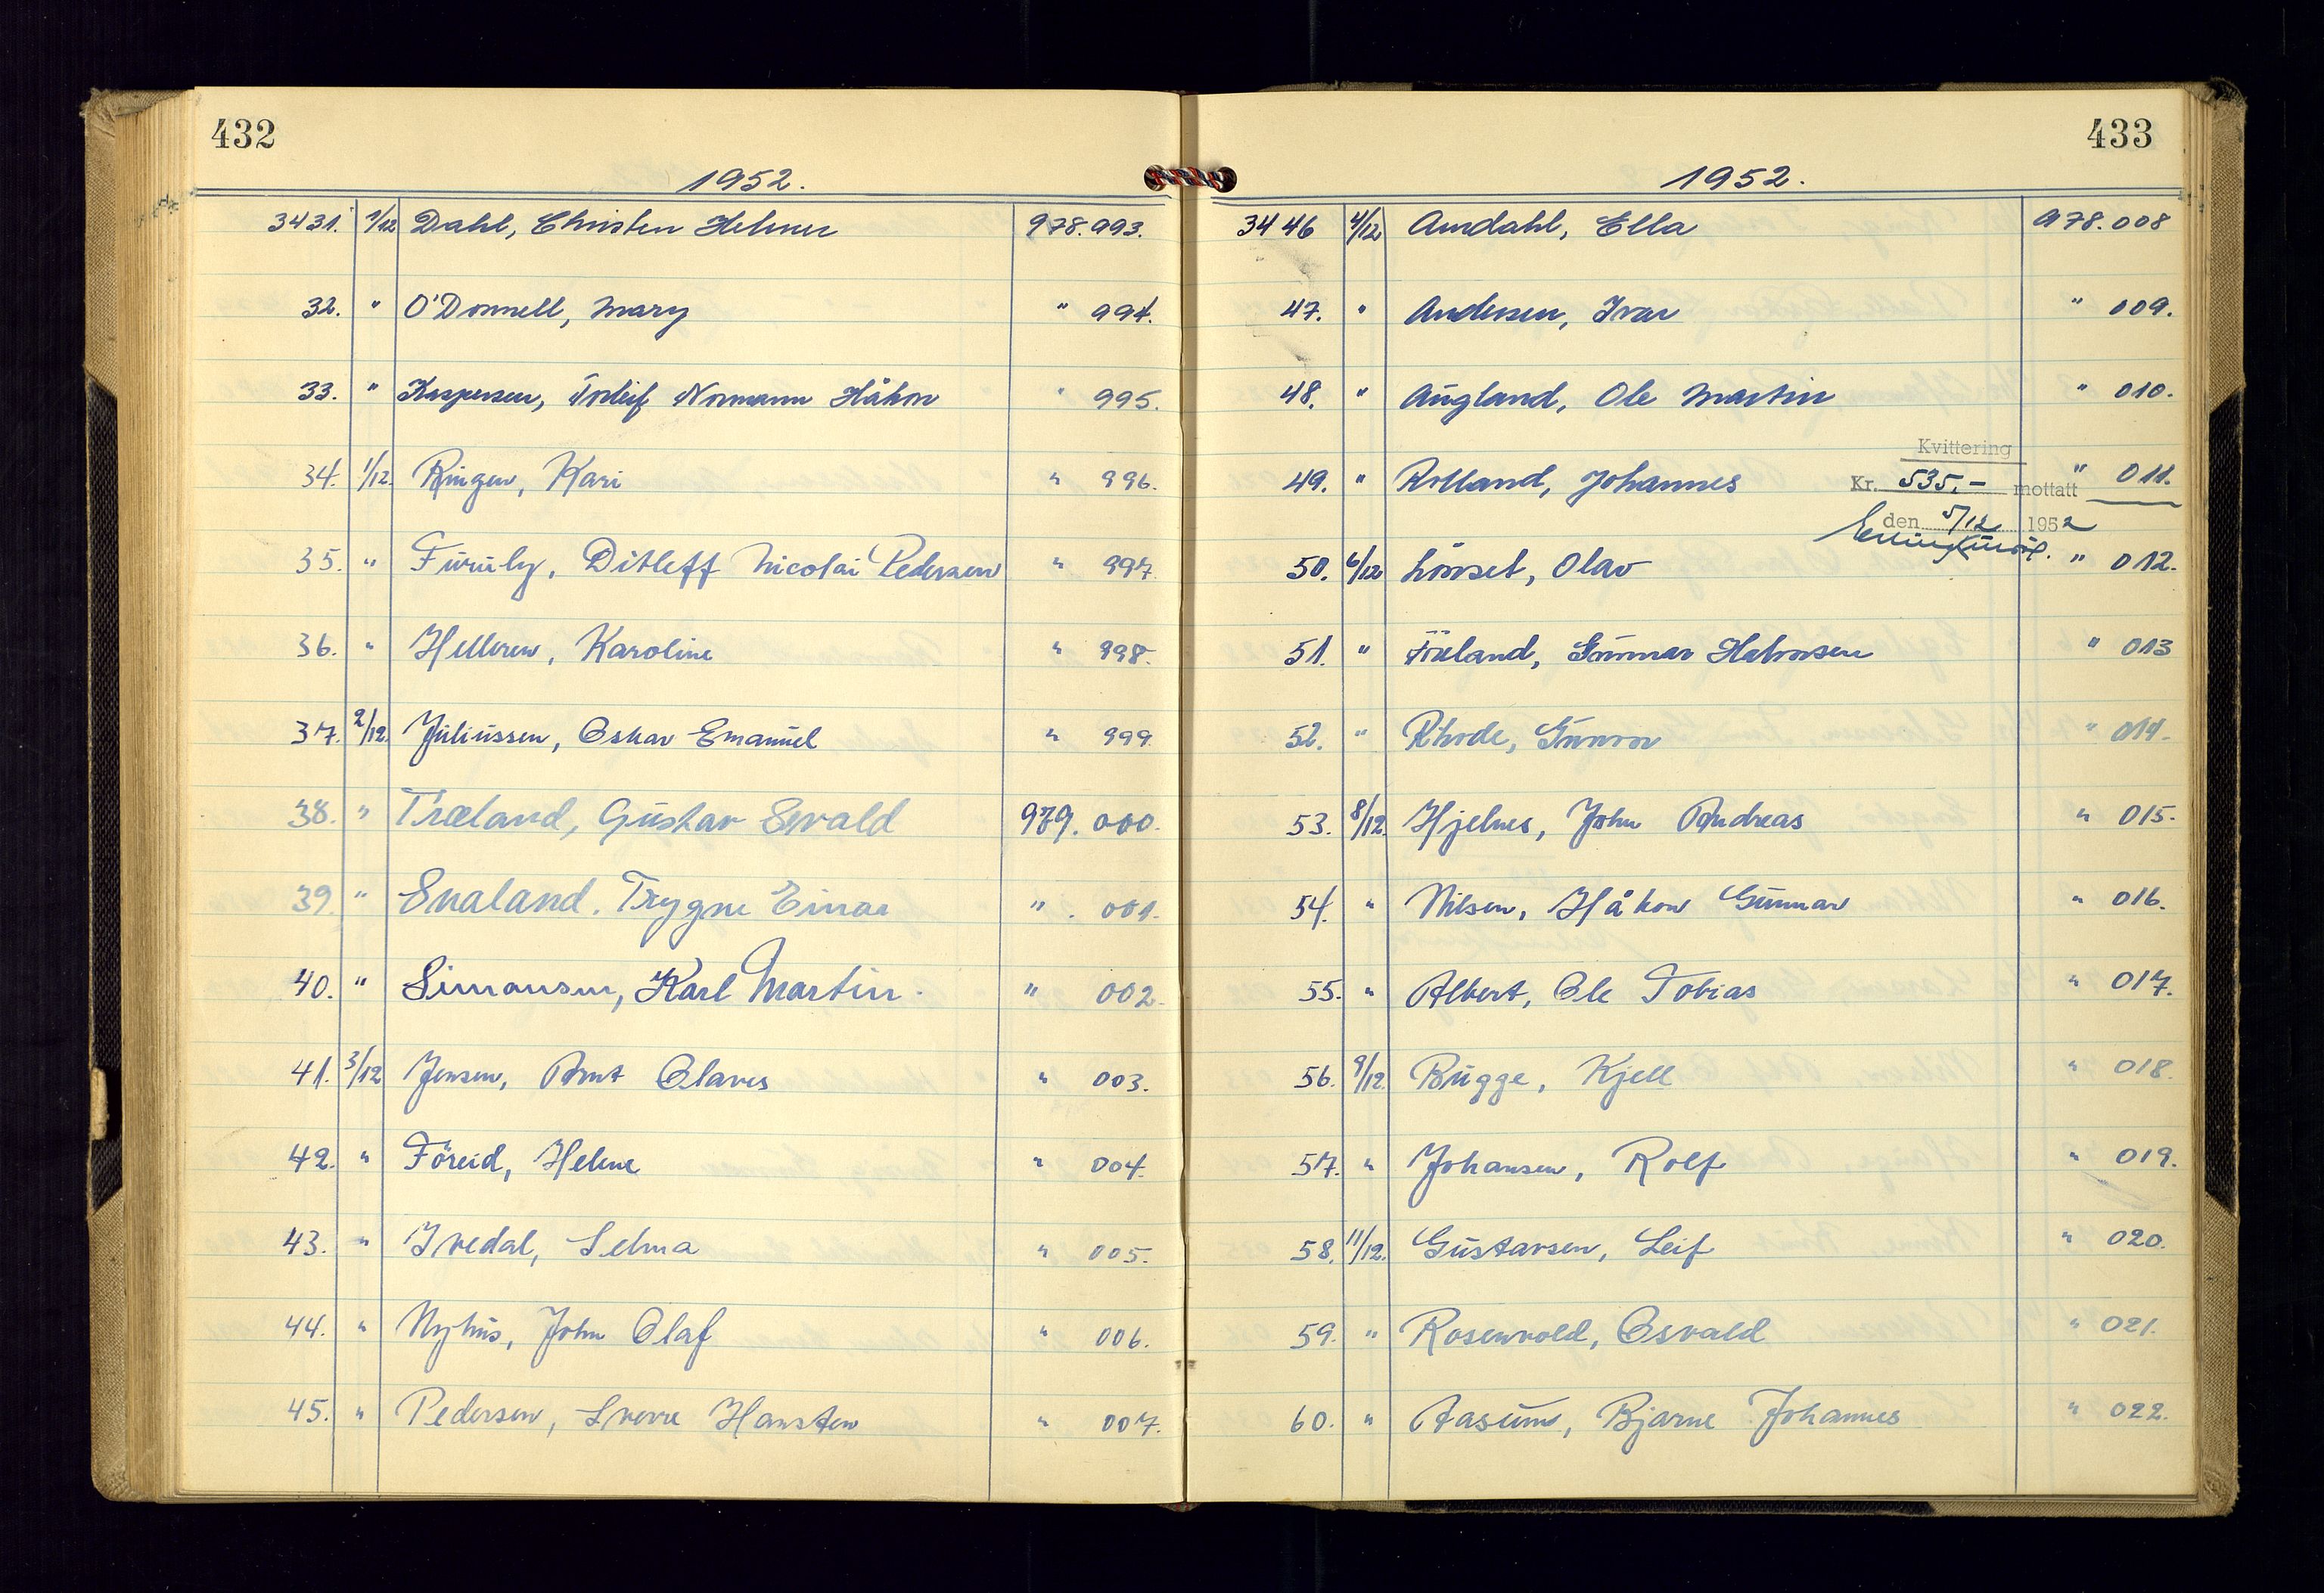 432
1952.
3431. 1/12 Dahl, Christen Helmer 978.993.
32. " O'Donnell, Mary " 994.
33. " Kaspersen, Torleif Normann Håkon " 995.
34. 1/12. Ringen, Kari " 996.
35. " Furuly, Ditleff Nicolai Pedersen " 997
36. " Helleren, Karoline " 998.
37. 2/12. Juliussen, Oskar Emanuel " 999.
38. " Træland, Gustav Ewald 979.000.
39. " Enaland. Trygve Einar " . 001.
40. " Simonsen, Karl Martin. " 002.
41. 3/12 Jensen, Arnt Olaves " 003.
42. " Föreid, Helene " 004.
43. " Ivedal, Selma " 005.
44. " Nyhus, John Olaf " 006.
45. " Pedersen, Sverre Hansten " 007.
433
1952.
3446 4/12 Amdahl, Ella 978.008
47. " Andersen, Ivar " 009.
48. " Augland, Ole Martin " 010.
Kvittering
49. " Rolland, Johannes Kr. 535.- mottatt " 011.
den 5/12 1952
50. 6/12 Lönset, Olav " 012.
51. " Fröland, Gunnar Halvorsen " 013
52. " Rhode, Gunvor " 014.
53. 8/12. Hjelnes, John Andreas " 015.
54. " Nilsen, Håkon Gunnar " 016.
55. " Albert, Ole Tobias " 017.
56. 9/12. Bugge, Kjell " 018.
57. " Johansen, Rolf " 019.
58. 11/12. Gustavsen, Leif " 020.
59. " Rosenvold, Osvald " 021.
60. " Aasum, Bjarne Johannes " 022.